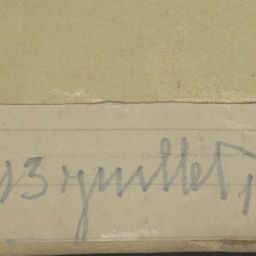 13 juillet